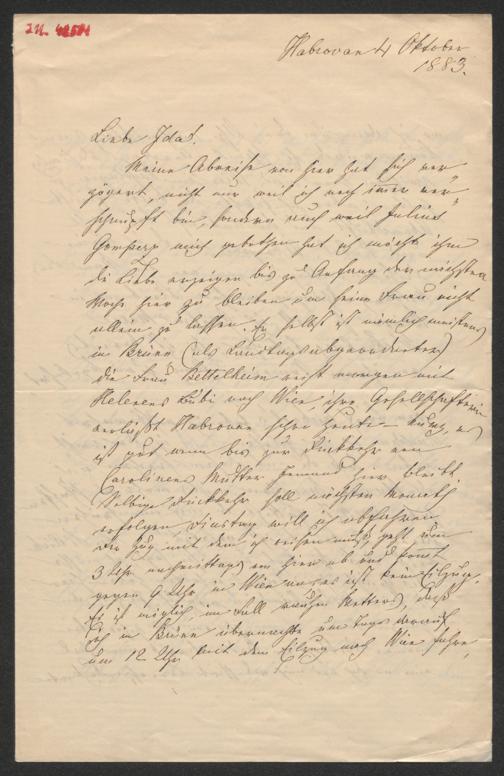 I.N. 
Habrovan 4 Oktober
1883.
Liebe Ida!
Meine Abreise von hier hat sich ver-
zögert, nicht nur weil ich noch immer ver-
schnupft bin, sondern auch weil Julius
Gomperz mich gebethen hat ich möchte ihm
die Liebe erzeigen bis zu Anfang der nächsten
Woche hier zu bleiben um seine Frau nicht
allein zu lassen. Er selbst ist nämlich meistens
in Brünn (als Landtagsabgeordneter)
die Frau Bettelheim reist morgen mit
Helenens Bübi nach Wien, ihre Gesellschafterin
verläßt Habrovan schon heute - kurz, es
ist gut wenn bis zur Rückkehr von
Carolinens Mutter Jemand hier bleibt.
Selbige Rückkehr soll nächsten Montag
erfolgen Dinstag will ich abfahren
Der Zug mit dem ich reisen muß, geht um
3 Uhr nachmittags von hier ab und kommt
gegen 9 Uhr in Wien an, es ist kein Eilzug.
Es ist möglich, im Fall rauhen Wetters, daß
ich in Brünn übernachte um Tags darauf
um 12 Uhr mit dem Eilzug nach Wien fahre,